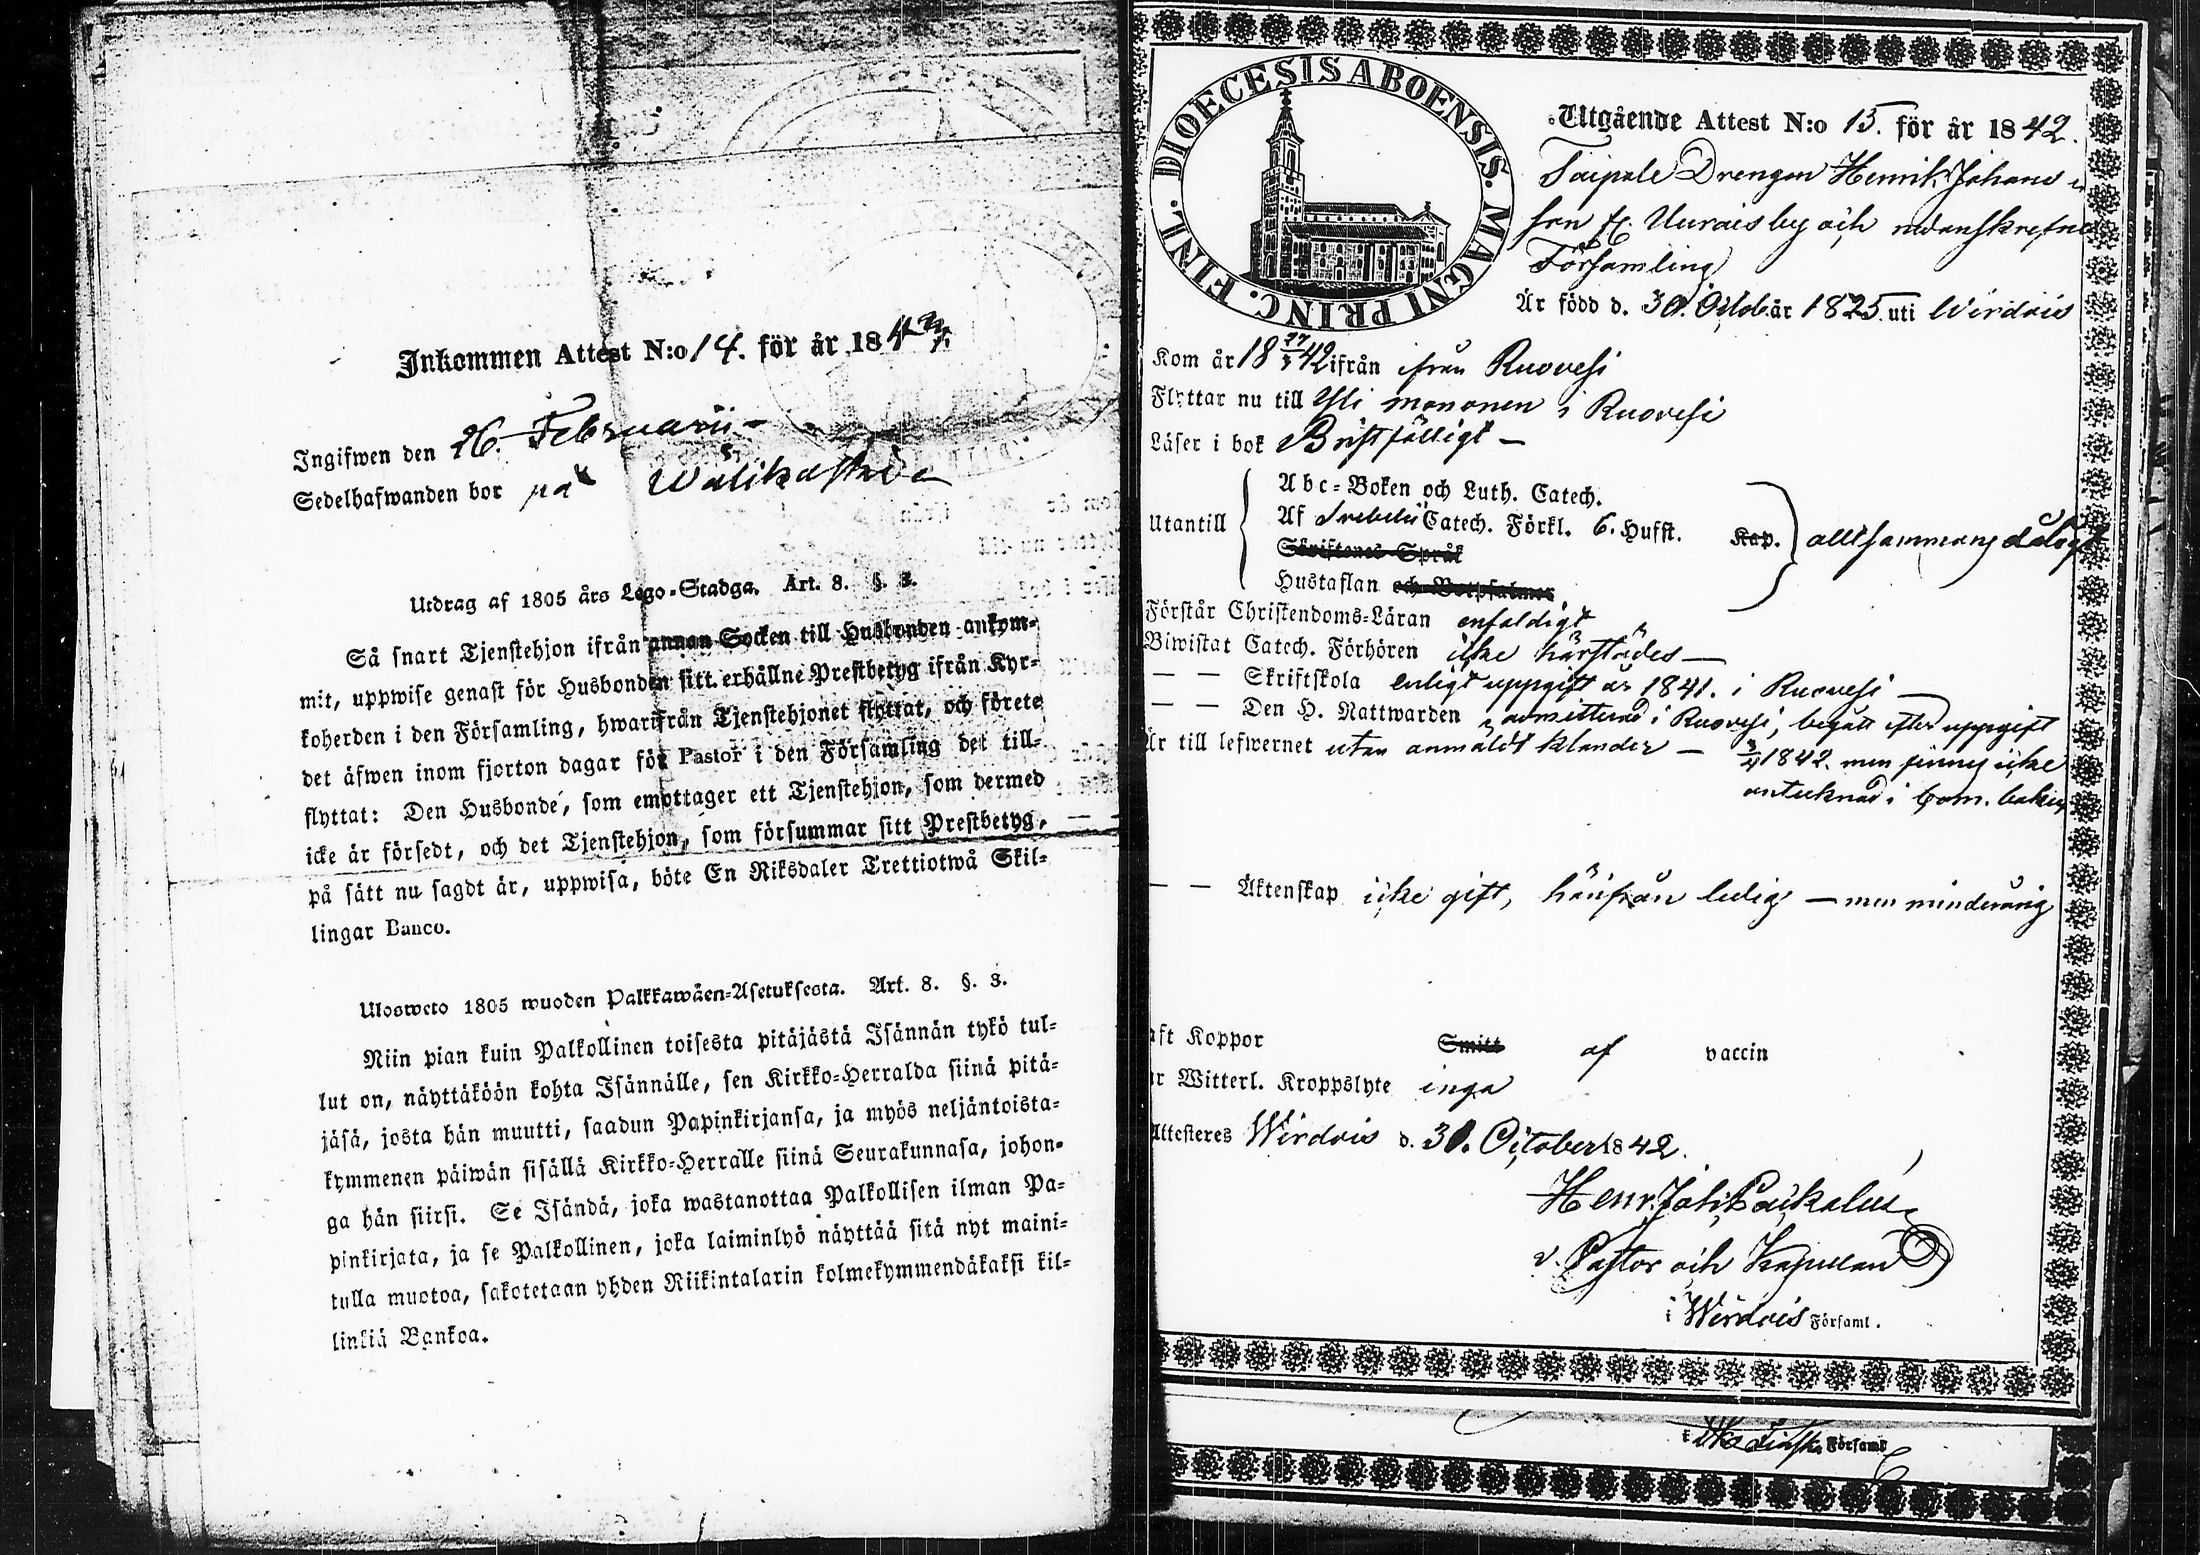 Inkommen Attest N:o 14. för år 184
Ingifwen den 26. Februarii
Sedelhafwanden bor på
Utdrag af 1805 års Lego-Stadga. Art. 8. §. 3.
Så snart Tjenstehjon ifrån annan Socken till Husbonden ankom-
mit, uppwise genast för Husbonden sitt erhållne Prestbetyg ifrån Kyr-
koherden i den Församling, hwarifrån Tjenstehjonet flyttat, och förete
det äfwen inom fjorton dagar för Pastor i den Församling det till-
flyttat: Den Husbonde, som emottager ett Tjenstehjon, som dermed
icke är försedt, och det Tjenstehjon, som försummar sitt Prestbetyg,
på sätt nu sagdt är, uppwisa, böte En Riksdaler Trettiotwå Skil-
lingar Banco.
Ulosweto 1805 wuoden Palkkawäen-Asetuksesta. Art. 8. §. 3.
Niin pian kuin Palkollinen toisesta pitäjästä Isännän tykö tul-
lut on, näyttäköön kohta Isännälle, sen Kirkko-Herralda siinä pitä-
jäsä, josta hän muutti, saadun Papinkirjansa, ja myös neljäntoista-
kymmenen päiwän sisällä Kirkko-Herralle siinä Seurakunnasa, johon-
ga hän siirsi. Se Isändä, joka wastanottaa Palkollisen ilman Pa-
pinkirjata, ja se Palkollinen, joka laiminlyö näyttää sitä nyt maini-
tulla muotoa, sakotetaan yhden Riikintalarin kolmekymmendäkaksi kil-
linkiä Bankoa.
DIOECESIS ABOENSIS. MAGNI PRINC. FINL.
Utgående Attest N:o 15. för år 1842.
Taipale Drengen Henrik Johans
son fr. Uurais by och
Församling
Är född d. 30. Octob. år 1825. uti Wirdois
Kom år 18 42 ifrån ifrån Ruovesi
Flyttar nu till Yli mononen i Ruovesi
Läser i bok Bristfälligt —
Utantill
Abc-Boken och Luth. Catech.
Af Svebelii Catech. Förkl. 6. Hufst. Kap.
Skriftenes Språk
Hustaflan och Botpsalmer
alltsammans
Förstår Christendoms-Läran enfaldigt
Biwistat Catech. Förhören icke härstädes —
— — Skriftskola enligt uppgift år 1841. i Ruovesi —
— — Den H. Nattwarden admitterad i Ruovesi, begått efter uppgift
Är till lefwernet utan anmäldt klander — 3/4 1842. men finnes icke
antecknad i Com. boken
— — Äktenskap icke gift, härifrån ledig — men minderårig
aft Koppor Smitt af vaccin
är Witterl. Kroppslyte inga
Attesteres Wirdois d. 30. October 1842.
Henr. Joh.
v. Pastor och Kapellan
i Wirdois Församl.
i Församl